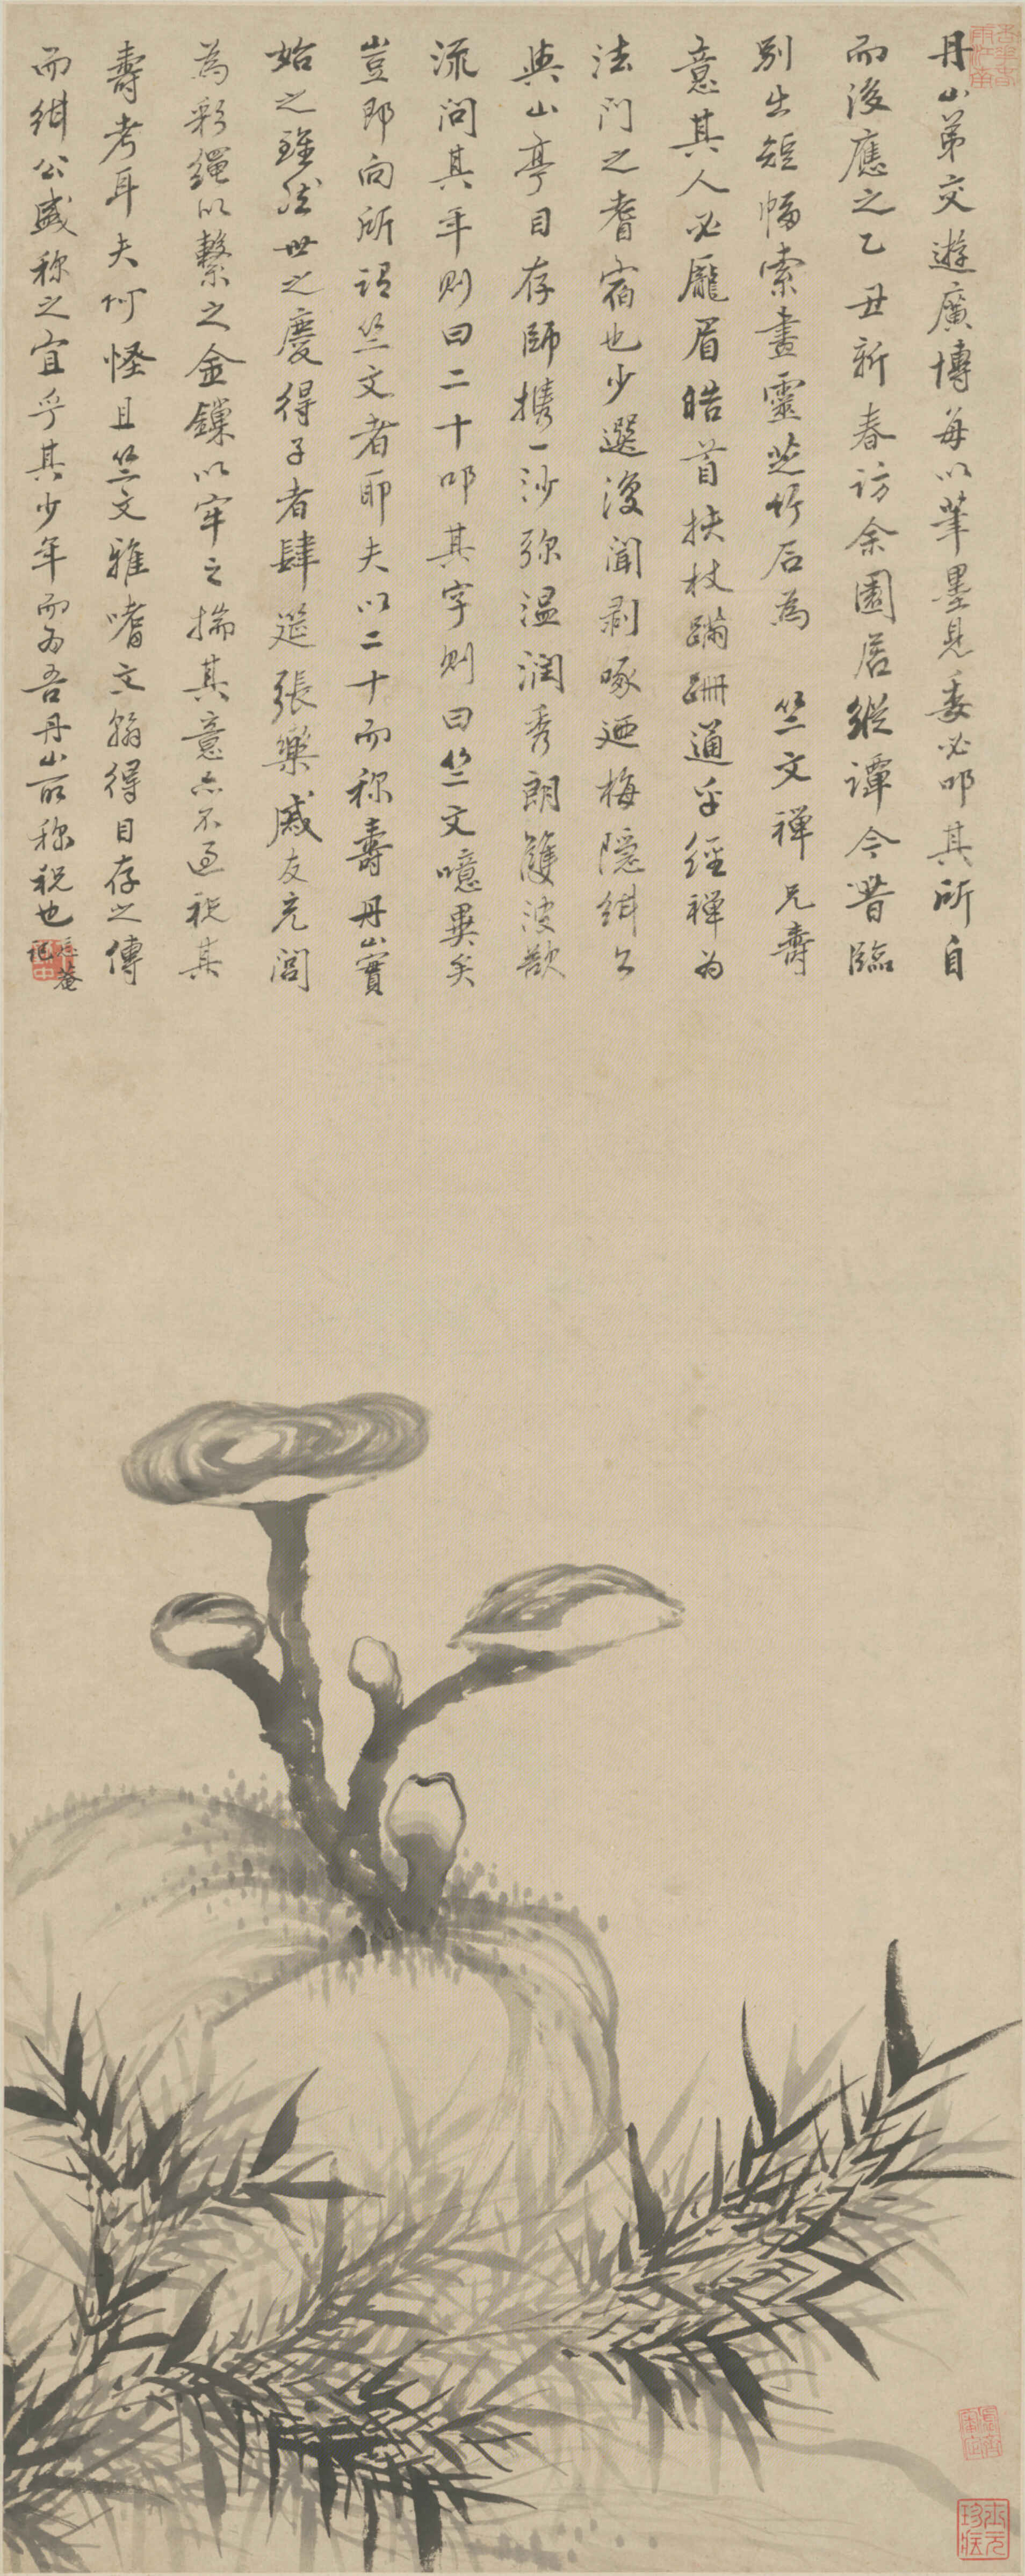 丹山弟交遊廣博每以筆墨見委必叩其所自
而後應之乙丑新春訪余園居縱譚今昔臨
別出短幅索畫靈芝竹石為 竺文禪兄壽
意其人必龐眉皓首扶杖蹣跚通乎經禪為
法門之耆宿也少選復聞剥啄迺梅隱緝公
與山亭目存師携一沙弥温潤秀朗雙波欲
流問其年則曰二十叩其字則曰竺文噫異矣
豈即向所謂竺文者耶夫以二十而称壽丹山實
始之雖然世之慶得子者肆筵張樂戚友充閭
為彩繩以繫之金鏁以牢之揣其意亦不過祝其
壽考耳夫何怪且竺文雅嗜文翰得目存之傳
而緝公盛称之宜乎其少年而為吾丹山所称祝也
菴記